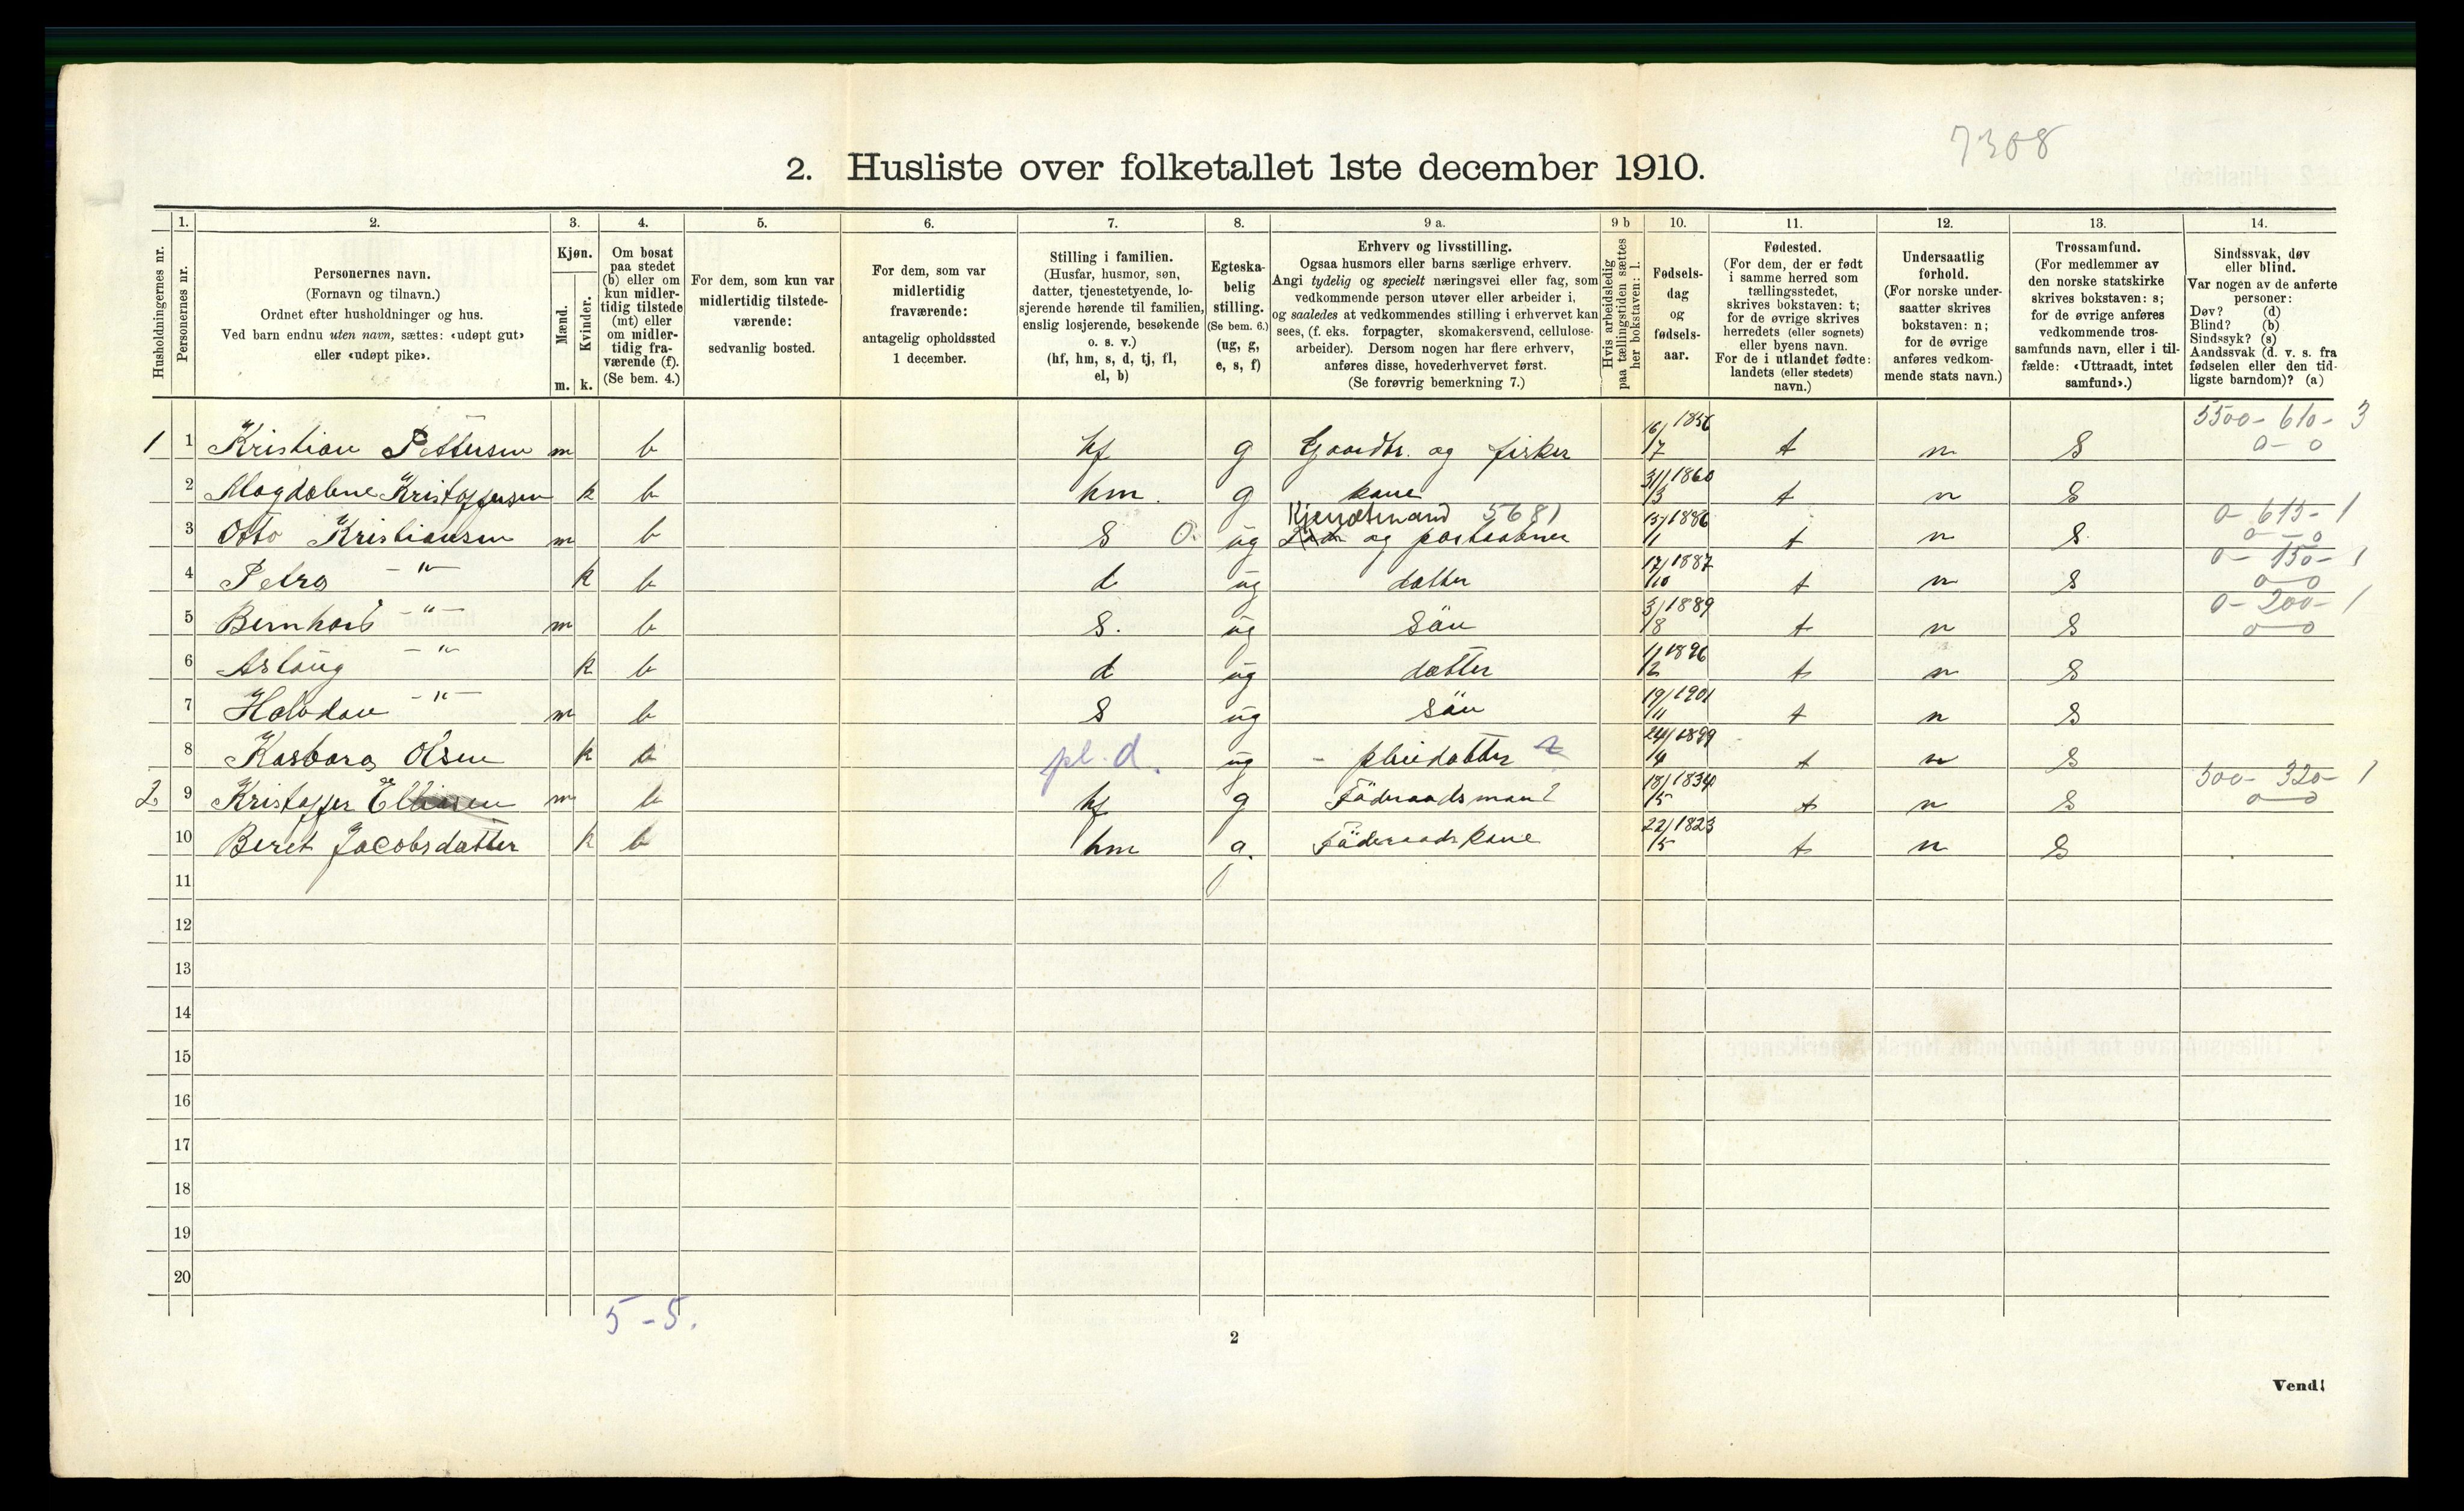 7308
2. Husliste over folketallet 1ste december 1910.
Husholdningernes nr.
1.
Personernes nr.
2.
Personernes navn.
(Fornavn og tilnavn.)
Ordnet efter husholdninger og hus.
Ved barn endnu uten navn, sættes: «udøpt gut»
eller «udøpt pike».
3.
Kjøn.
Mænd.
m.
Kvinder.
k.
4.
Om bosat
paa stedet
(b) eller om
kun midler-
tidig tilstede
(mt) eller
om midler-
tidig fra-
værende (f).
(Se bem. 4.)
5.
For dem, som kun var
midlertidig tilstede-
værende:
sedvanlig bosted.
6.
For dem, som var
midlertidig
fraværende:
antagelig opholdssted
1 december.
7.
Stilling i familien.
(Husfar, husmor, søn,
datter, tjenestetyende, lo-
sjerende hørende til familien,
enslig losjerende, besøkende
o. s. v.)
(hf, hm, s, d, tj, fl,
el, b)
8.
Egteska-
belig
stilling.
(Se bem. 6.)
(ug, g,
e, s, f)
9 a.
Erhverv og livsstilling.
Ogsaa husmors eller barns særlige erhverv.
Angi tydelig og specielt næringsvei eller fag, som
vedkommende person utøver eller arbeider i,
og saaledes at vedkommendes stilling i erhvervet kan
sees, (f. eks. forpagter, skomakersvend, cellulose-
arbeider). Dersom nogen har flere erhverv,
anføres disse, hovederhvervet først.
(Se forøvrig bemerkning 7.)
9 b
Hvis arbeidsledig
paa tællingstiden sættes
her bokstaven: l.
10.
Fødsels-
dag
og
fødsels-
aar.
11.
Fødested.
(For dem, der er født
i samme herred som
tællingsstedet,
skrives bokstaven: t;
for de øvrige skrives
herredets (eller sognets)
eller byens navn.
For de i utlandet fødte:
landets (eller stedets)
navn.)
12.
Undersaatlig
forhold.
(For norske under-
saatter skrives
bokstaven: n;
for de øvrige
anføres vedkom-
mende stats navn.)
13.
Trossamfund.
(For medlemmer av
den norske statskirke
skrives bokstaven: s;
for de øvrige anføres
vedkommende tros-
samfunds navn, eller i til-
fælde: «Uttraadt, intet
samfund».)
14.
Sindssvak, døv
eller blind.
Var nogen av de anførte
personer:
Døv? (d)
Blind? (b)
Sindssyk? (s)
Aandssvak (d. v. s. fra
fødselen eller den tid-
ligste barndom)? (a)
1 1 Kristian Pettersen m b hf g Gaardbr. og fisker 16/7 1856 t n S 5500-610-3 0-0
2 Magdalene Kristoffersen k b hm. g kone 31/3 1860 t n S
3 Otto Kristiansen m b S O. ug Kjendtmand 5681 og postaabner 15/1 1886 t n S. 0-615-1 0-0
4 Petra -"- k b d ug datter 17/10 1887 t n S 0-150-1 0-0
5 Bernhard -"- m b S. ug Sön 3/8 1889 t n S 0-200-1 0-0
6 Aslaug -"- k b d ug datter 11/2 1896 t n S
7 Halvdan -"- m b S ug Sön 19/11 1901 t n S
8 Kasbara Olsen k b pl. d. ug - pleiedatter 24/4 1899 t n S
2 9 Kristoffer Elliasen m b hf g Föderaadsmand 18/5 1834 t n S 500-320-1 0-0
10 Beret Jacobsdatter k b hm g. Föderaadskone 22/5 1823 t n S
11
12
13
14
15
16
17
18
19
20
5-5.
2
Vend!